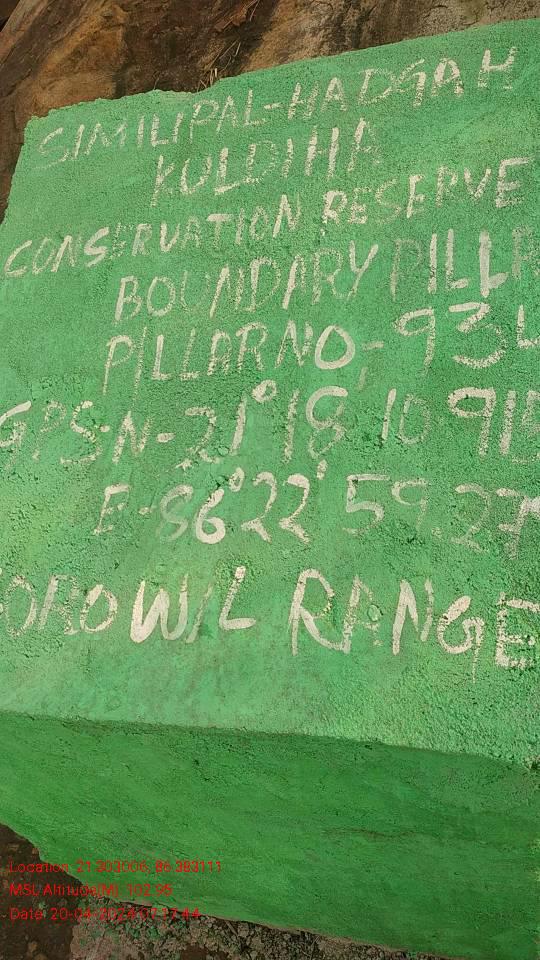 SIMILIPAL-HADGAH
KULDIHA
CONSERVATION RESERVE
BOUNDARY PILLR
PILLAR NO:- 934
GPS-N-21°18' 10.915
E-86°22' 59.27
RANGE
Location: 21.303006, 86.383111
MSL Altitude(M): 102.95
Date: 20-04-2024 07:17:44